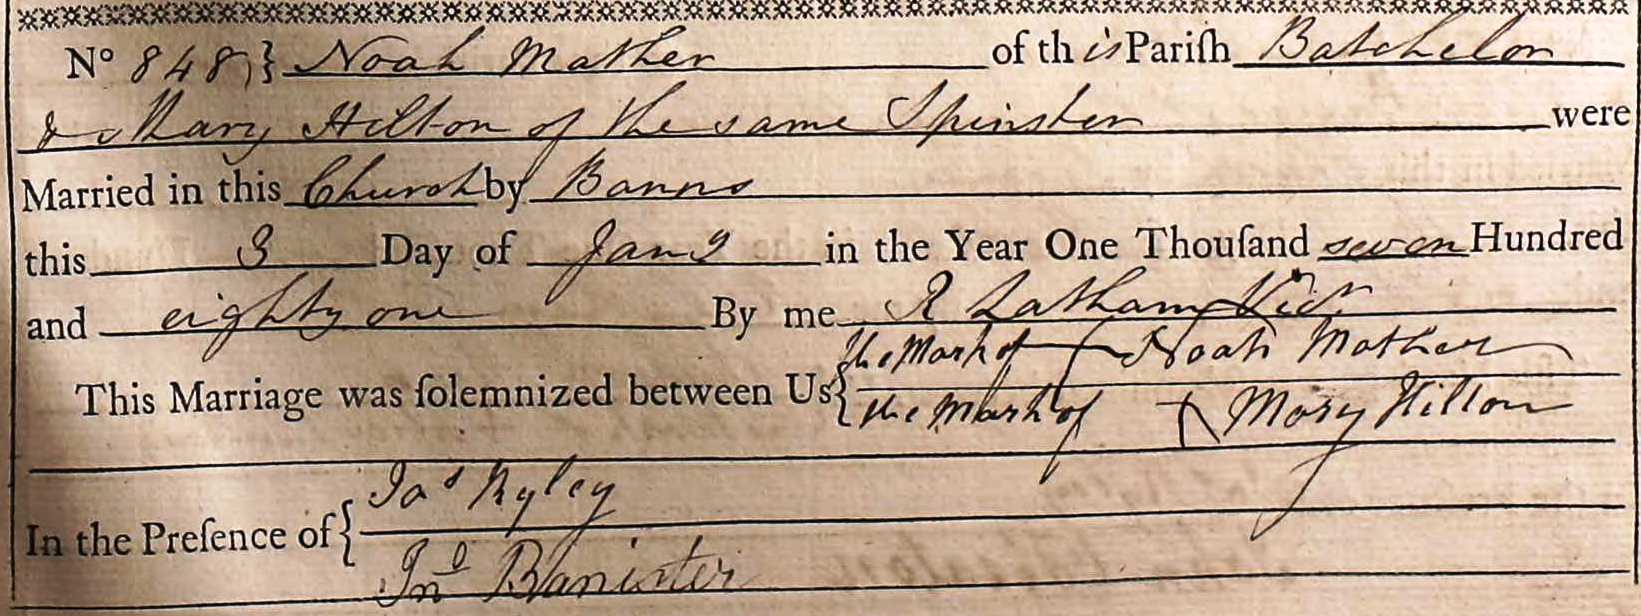 No 848 } Noah Mather of this Pariſh Batchelor
& Mary Hilton of the same Spinster were
Married in this Church by Banns
this 3 Day of Jany in the Year One Thouſand seven Hundred
and eighty one By me R Latham Vicr
This Marriage was ſolemnized between Us { the Mark of + Noah Mather
the Mark of + Mary Hilton
In the Preſence of { Jas Ryley
Jno Banister